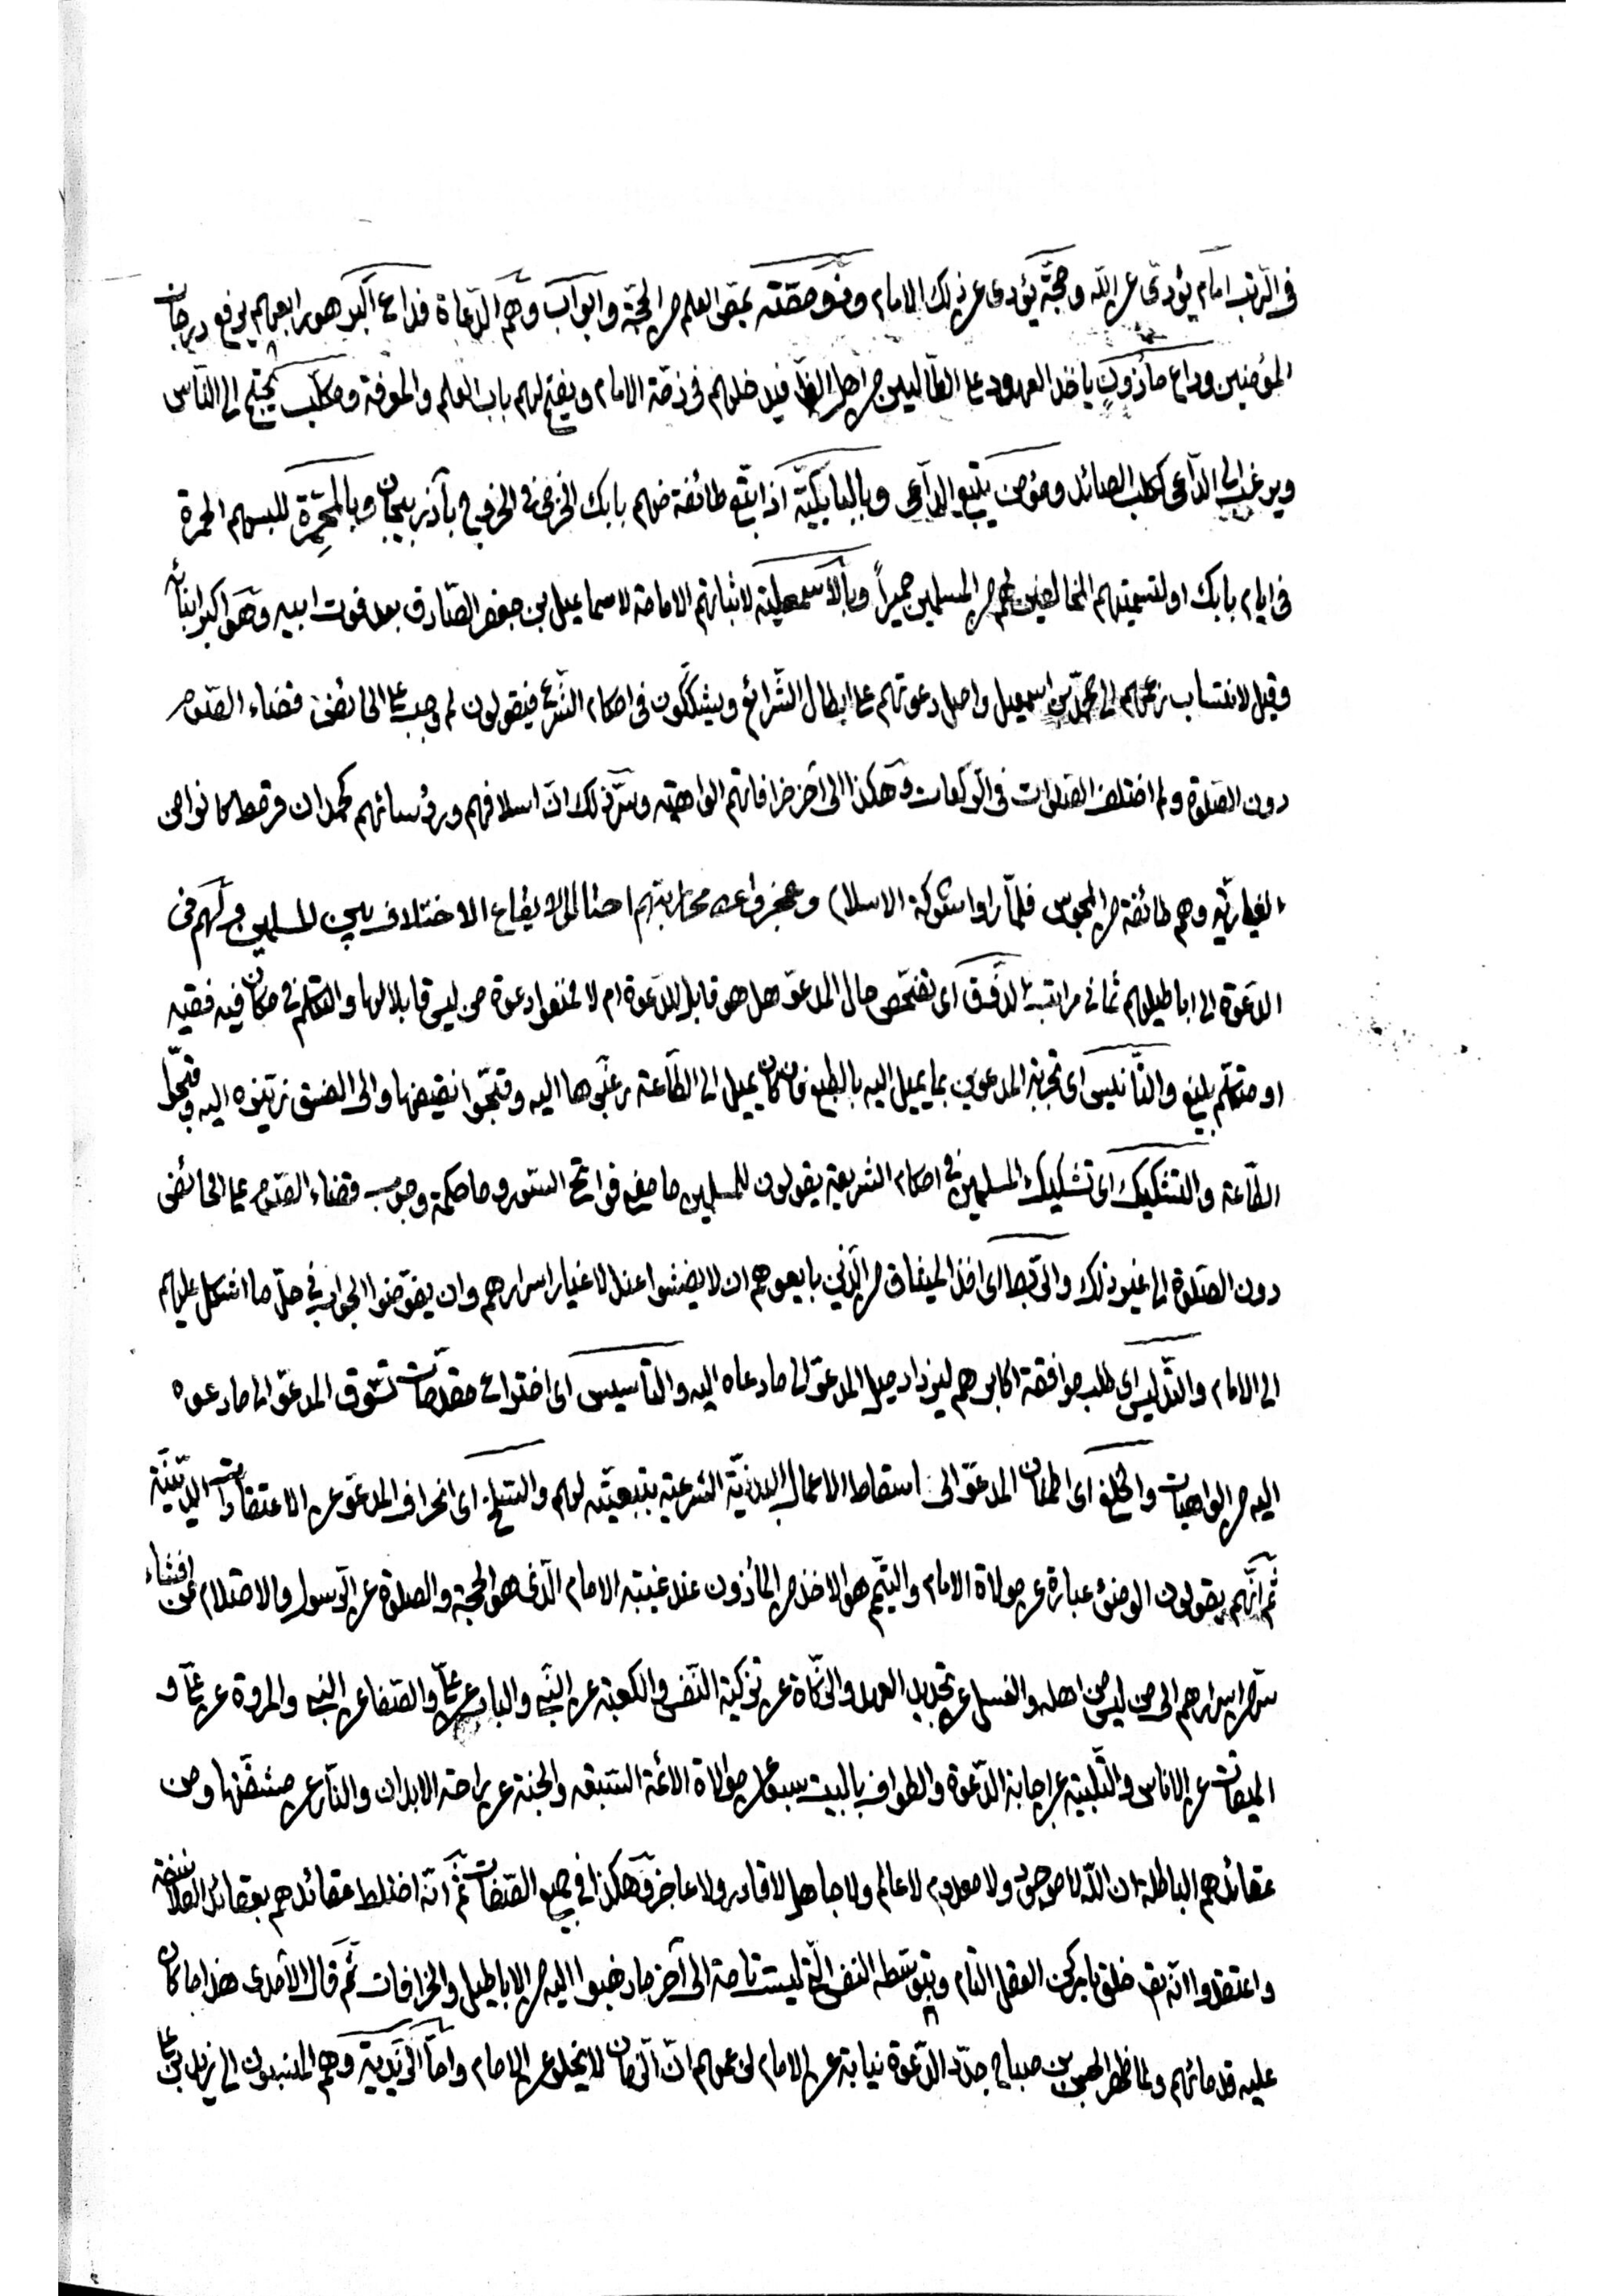 في الرتب امام يؤدى عن الله وحجة يؤدى عن ذلك الامام وذو مصّة يمص العلم من الحجة وابواب وهم الدعاة فداع اكبر هو رابعهم يرفع درجات
المؤمنين وداع مأذون ياخذ العهود على الطالبين من اهل الظاهر فيدخلهم في ذمّة الامام ويفتح لهم باب العلم والمعرفة ومكلّب يحتج الى الناس
ويرغب الى الداعى ككلب الصائد ومؤمن يتبع الداعى وبالبابكيّة اذ اتبع طائفة منهم بابك الخرمى في الخروج بآذربيجان وبالمحمّرة للبسهم الحمرة
في ايام بابك او لتسميتهم المخالفين لهم من المسلمين حميراً وبالاسمعيلية لاثباتهم الامامة لاسماعيل بن جعفر الصّادق بعد فوت ابيه وهو اكبر ابنائه
وقيل لانتساب زعمهم الى محمّد بن اسمعيل واصل دعوتهم على ابطال الشرائع ويشككون في احكام الشرع فيقولون لم وجب على الحائض قضاء الصّوم
دون الصّلوة ولم اختلف الصّلوات في الركعات وهكذا الى آخر خرافاتهم الواهية وسرّ ذلك انّ اسلافهم ورؤسائهم كحمدان قرمط كانوا من
الغيارية وهم طائفة من المجوس فلمّا راوا شوكة الاسلام وعجزوا عن محاربتهم احتالوا لايقاع الاختلاف بين المسلمين ولهم في
الدعوة الى اباطيلهم ثمانى مراتب الذّرق اى تفحّص حال المدعوّ هل هو قابل للدعوة ام لا فمنعوا دعوة من ليس قابلا لها والتكلم في مكان فيه فقيه
او متكلّم بليغ والتّانيس اى تجربة المدعوين بما يميل اليه بالطبع فان كان يميل الى الطاعة رغّبوها اليه وقبّحوا نقيضها والى الفسق زيّنوه اليه وقبّحوا
الطاعة والتشكيك اى تشكيك المسلمين في احكام الشريعة يقولون للمسلمين ما معنى فواتح السّور وما حكمة وجوب قضاء الصّوم على الحائض
دون الصّلوة الى غير ذلك والرّبط اى اخذ الميثاق من الذين بايعوهم ان لا يفشوا عند الاغيار اسرارهم وان يفوّضوا الجواب في حلّ ما اشكل عليهم
الى الامام والتدليس اى طلب موافقة اكابرهم ليزداد ميل المدعوّ الى ما دعاه اليه والتأسيس اى اختراع مقدمات تشوق المدعوّ الى ما دعوه
اليه من الواهيات والخلع اى اطمئنان المدعوّ الى اسقاط الاعمال البدنيّة الشرعية بتبعيّته لهم والسّلخ اى انحراف المدعوّ عن الاعتقادات الدينيّة
ثم انّهم يقولون الوضوء عبارة عن موالاة الامام والتيمّم هو الاخذ من المأذون عند غيبة الامام الذى هو الحجة والصلوة عن الرّسول والاحتلام عن افشاء
سرّ من اسرارهم الى من ليس من اهله والغسل عن تجديد العهد والزّكاة عن تزكية النّفس والكعبة عن النّبي والباب عن علىّ والصّفا عن النبي والمروة عن علىّ و
الميقات عن الاناس والتّلبية عن اجابة الدّعوة والطواف بالبيت سبعا عن موالاة الائمّة السّبعة والجنة عن راحة الابدان والنّار عن مشقّتها ومن
عقائدهم الباطلة ان الله لا موجود ولا معدوم لا عالم ولا جاهل لا قادر ولا عاجز وهكذا في جميع الصّفات ثمّ انّه اختلط عقائدهم بعقائد الفلاسفة
واعتقدوا انّه تع خلق بامر كن العقل التام وبتوسّطه النفس التى ليست تامة الى آخر ما ذهبوا اليه من الاباطيل والخرافات ثمّ قال الآمدى هذا ما كان
عليه قدمائهم ولمّا ظهر الحسن بن صباح جدّد الدّعوة نيابة عن الامام لزعمهم انّ الزّمان لا يخلو عن الامام وامّا الزّيدية وهم المنسبون الى زيد بن على